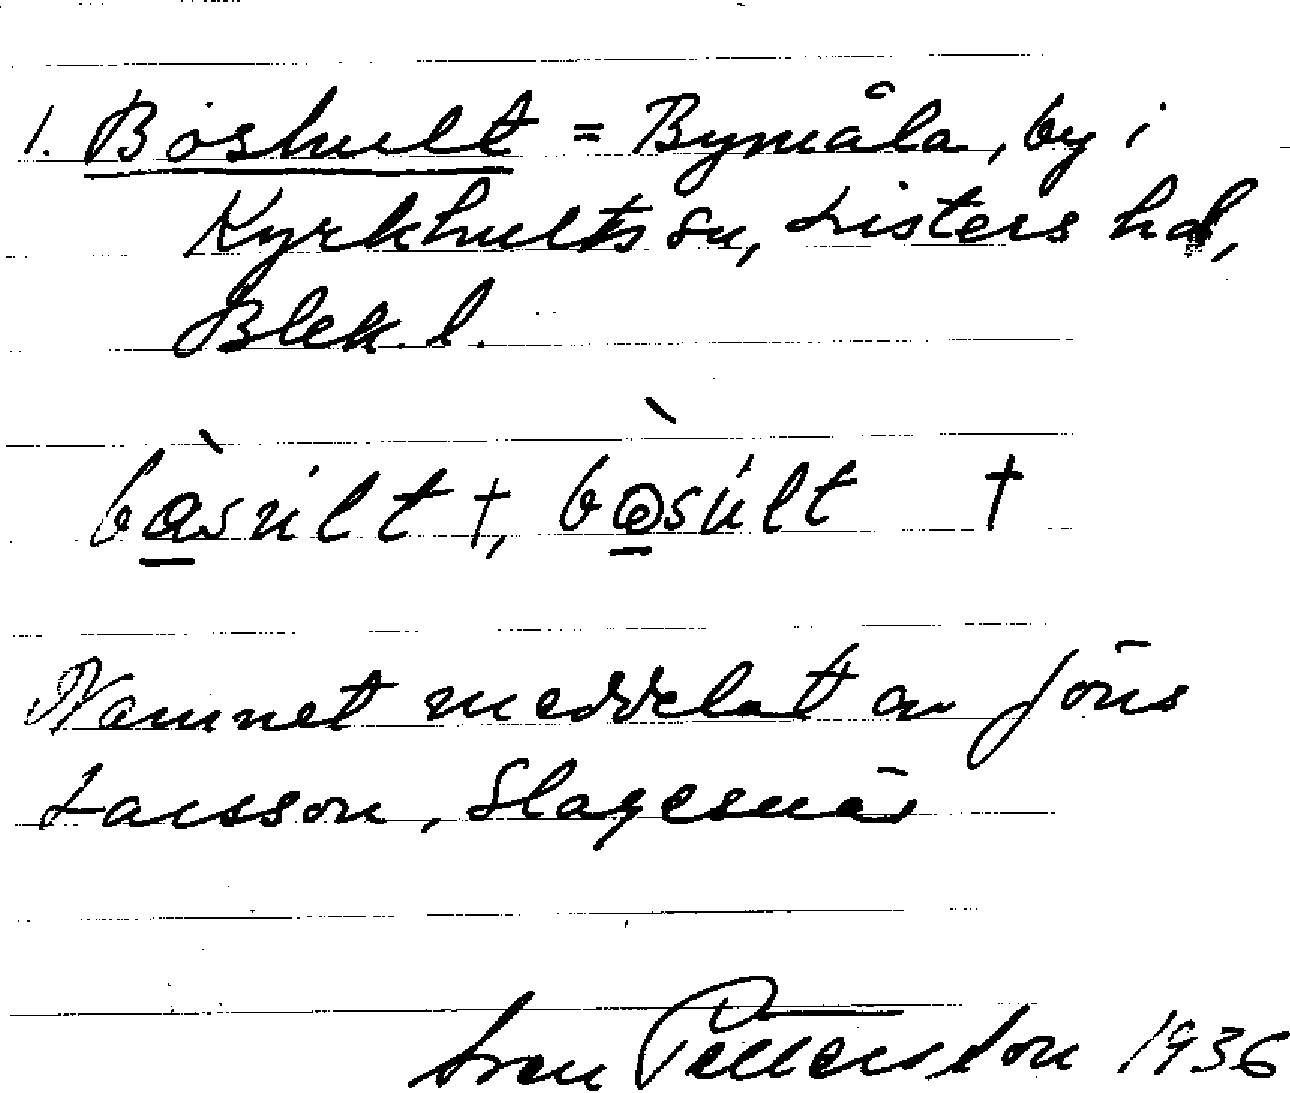 1. Boshult = Bymåla, by i
Kyrkhults sn, Listers hd,
Blek. l.
bɑ̀súlt †, bò̱súlt †
Namnet meddelat av Jöns
Larsson, Slagesnäs
Sven Pettersson 1936